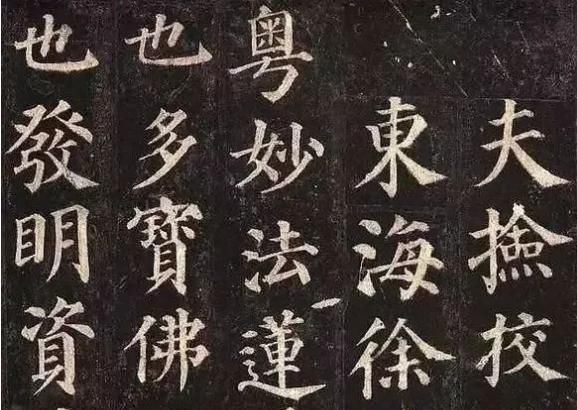 夫撿挍
東海徐
粤妙法蓮
也多寶佛
也發明資